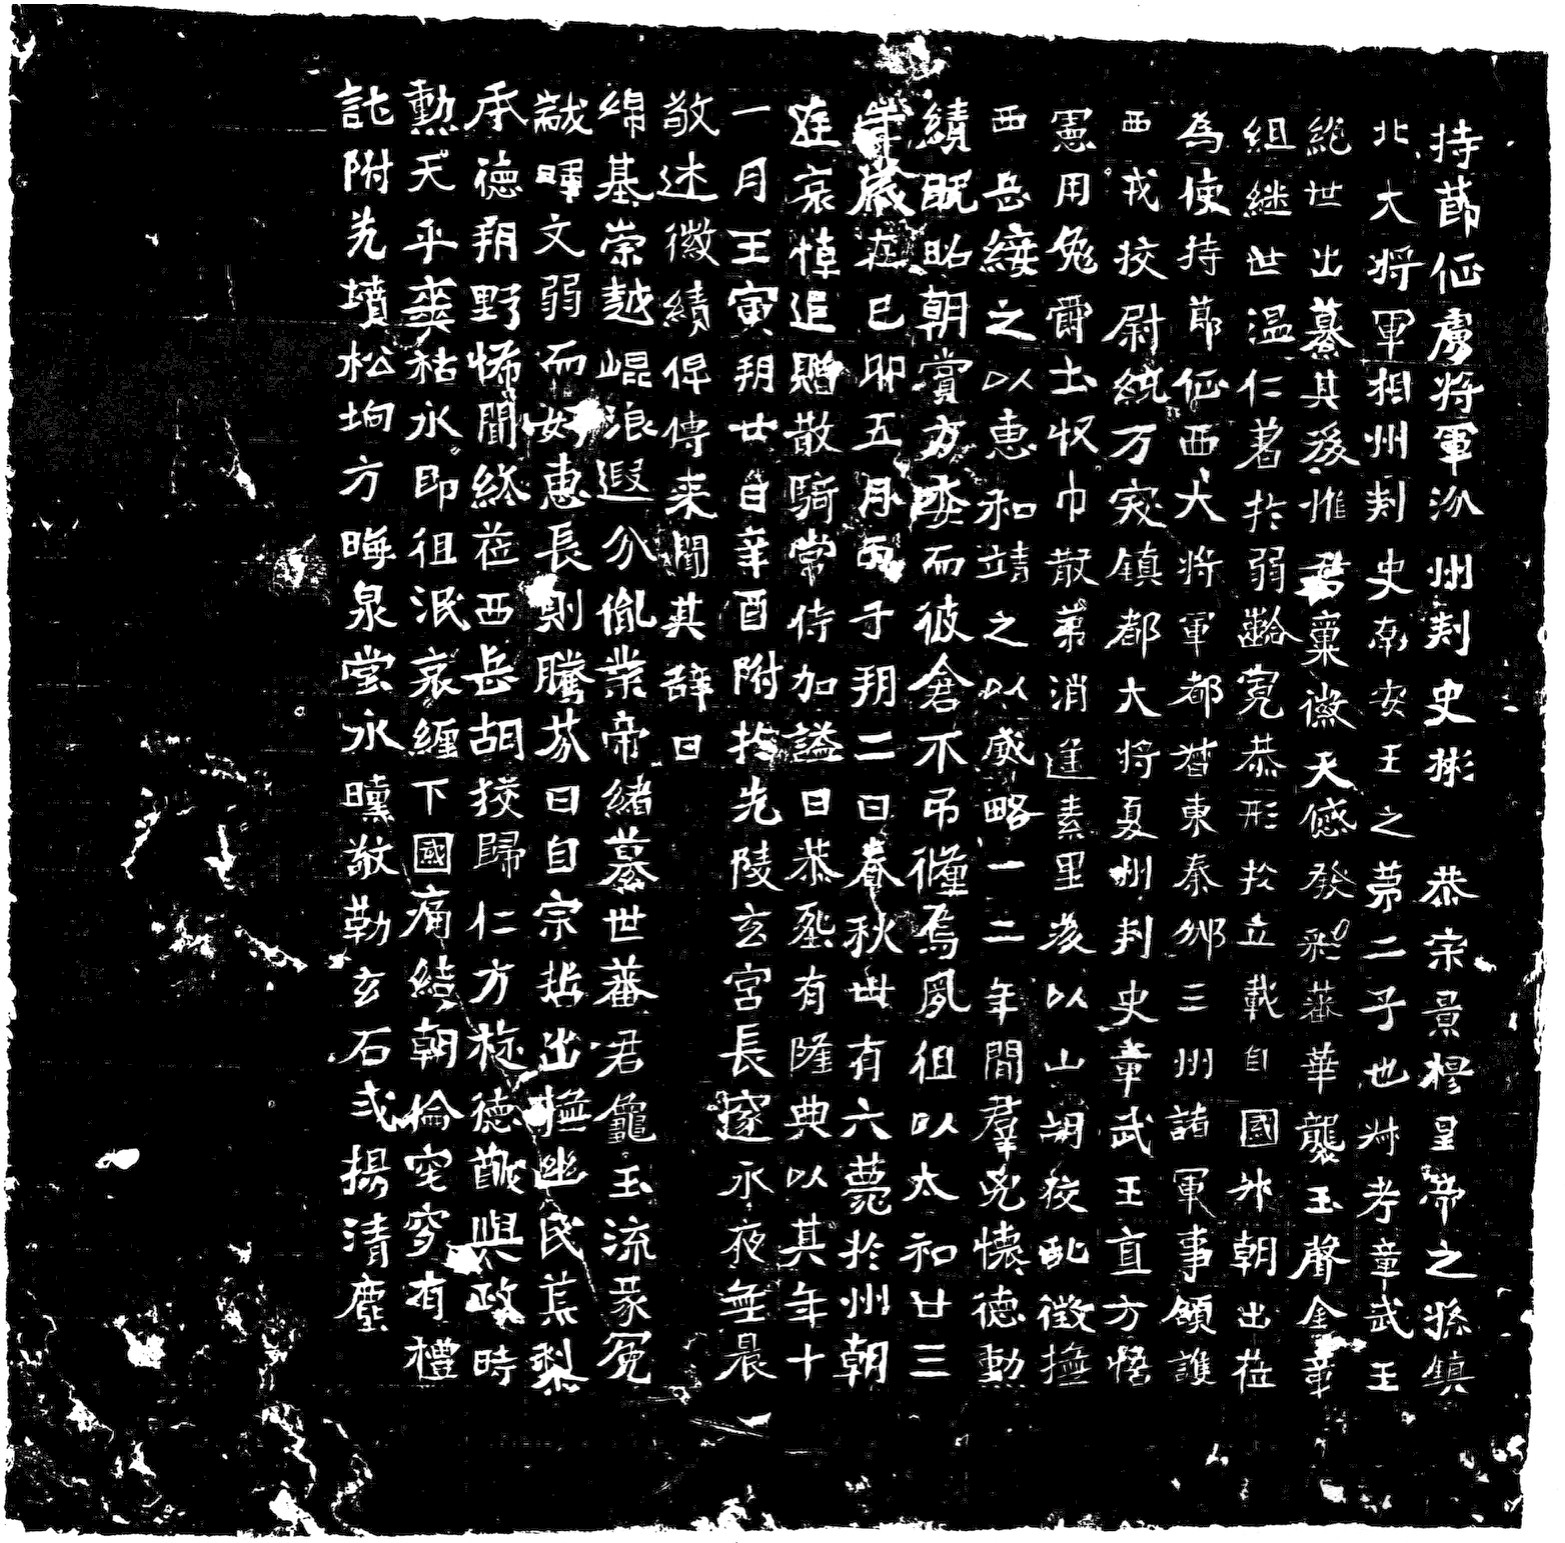 持節征虜將軍汾州刾史彬 恭宗景穆皇帝之孫鎮
北大將軍相州刾史南安王之第二子也叔考章武王
絕世出纂其後惟君稟徽天感發彩蕃華襲玉聲金章
組繼世温仁著於弱齡寬恭形於立載自國升朝出莅
為使持節征西大將軍都督東秦邠三州諸軍事領護
西戎校尉統万突鎮都大將夏州刾史章武王直方悟
憲用免爵土收巾散第消遙素里後以山胡校亂徵撫
西岳綏之以惠和靖之以威略一二年間羣兇懷德勳
績既昭朝賞方委而彼倉不弔殲焉夙徂以太和廿三
年歲在己卯五月丙子朔二日春秋卅有六薨於州朝
廷哀悼追贈散騎常侍加謚曰恭塟有隆典以其年十
一月壬寅朔廿日辛酉附於先陵玄宮長邃永夜無晨
敬述徽績俾傳来聞其辭曰
綿基崇越崐浪遐分胤業帝緒纂世蕃君龕玉流篆冕
黻暉文弱而好惠長則騰芬曰自宗哲出撫幽民莫梨
承德朔野怖聞終莅西岳胡校歸仁方旌德猷與政時
勳天乎奭祜永即徂泯哀纏下國痛結朝倫窀穸有禮
託附先墳松埛方晦泉堂永曛敬勒玄石式揚清塵